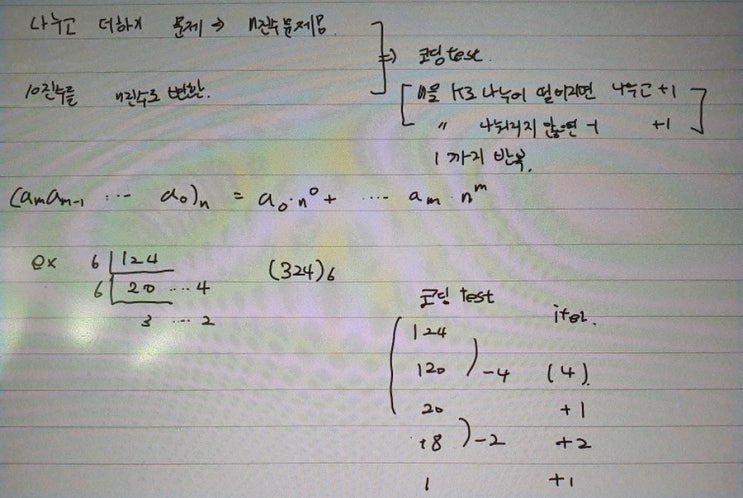 나누고 더하기 문제 → n진수문제임.
10진수를 n진수로 변환.
⇒ 코딩 test.
n을 K로 나누어 떨어지면 나누고 +1
〃 나눠지지 않면 -1 +1
1 까지 반복.
(amam-1 ... a0)n = a0·n^0 + ... am·n^m
ex 6 | 124
6 | 20 ... 4
3 ... 2
(324)6
코딩 test iter.
124
120 ) -4 (4)
20 +1
18 ) -2 +2
1 +1